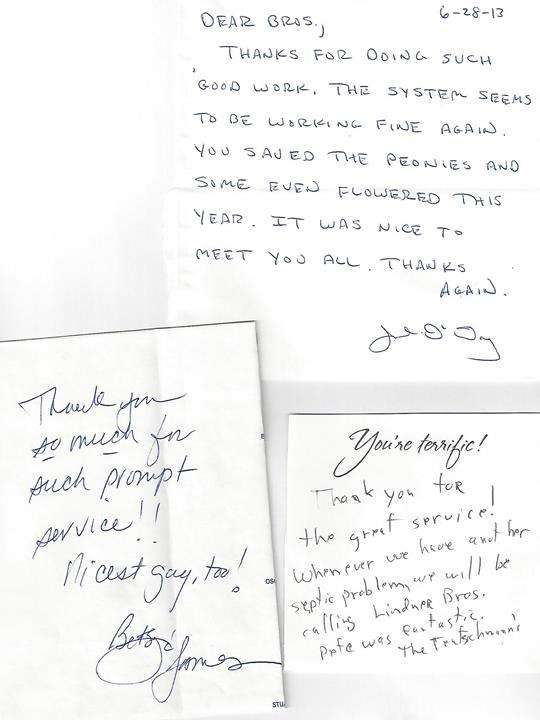 6-28-13
DEAR BROS.,
THANKS FOR DOING SUCH
GOOD WORK. THE SYSTEM SEEMS
TO BE WORKING FINE AGAIN.
YOU SAVED THE PEONIES AND
SOME EVEN FLOWERED THIS
YEAR. IT WAS NICE TO
MEET YOU ALL. THANKS
AGAIN.
Thank you
so much for
such prompt
service!!
Nicest guy, too!
Betsy
James
You're terrific!
Thank you for
the great service!
Whenever we have another
septic problem, we will be
calling Lindner Bros.
Pete was fantastic.
The